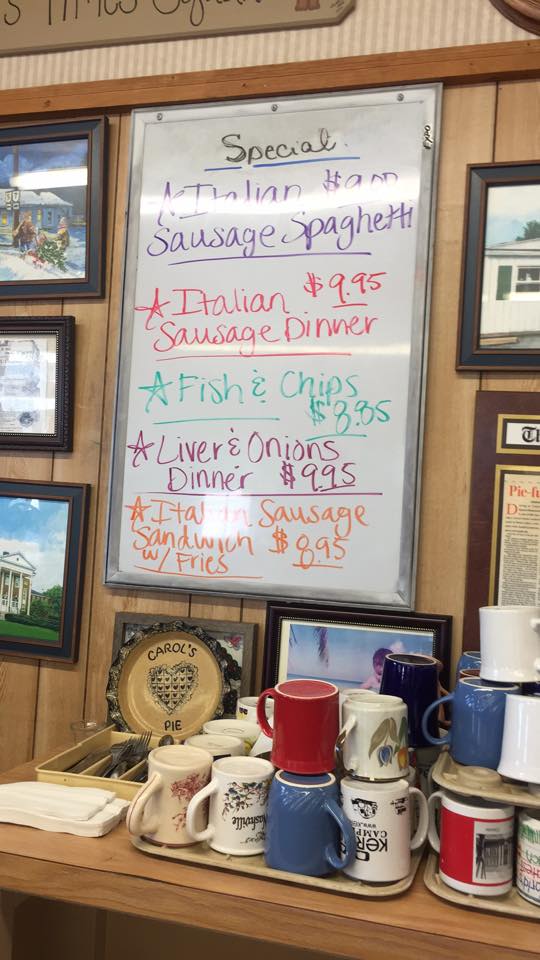 Special
☆ Italian $9.00
Sausage Spaghetti
☆ Italian $9.95
Sausage Dinner
☆ Fish & Chips
$8.85
☆ Liver & Onions
Dinner $9.95
☆ Italian Sausage
Sandwich $8.95
w/ Fries
EXPO
Pie-fu
CAROL'S
PIE
Nashville
CAMP